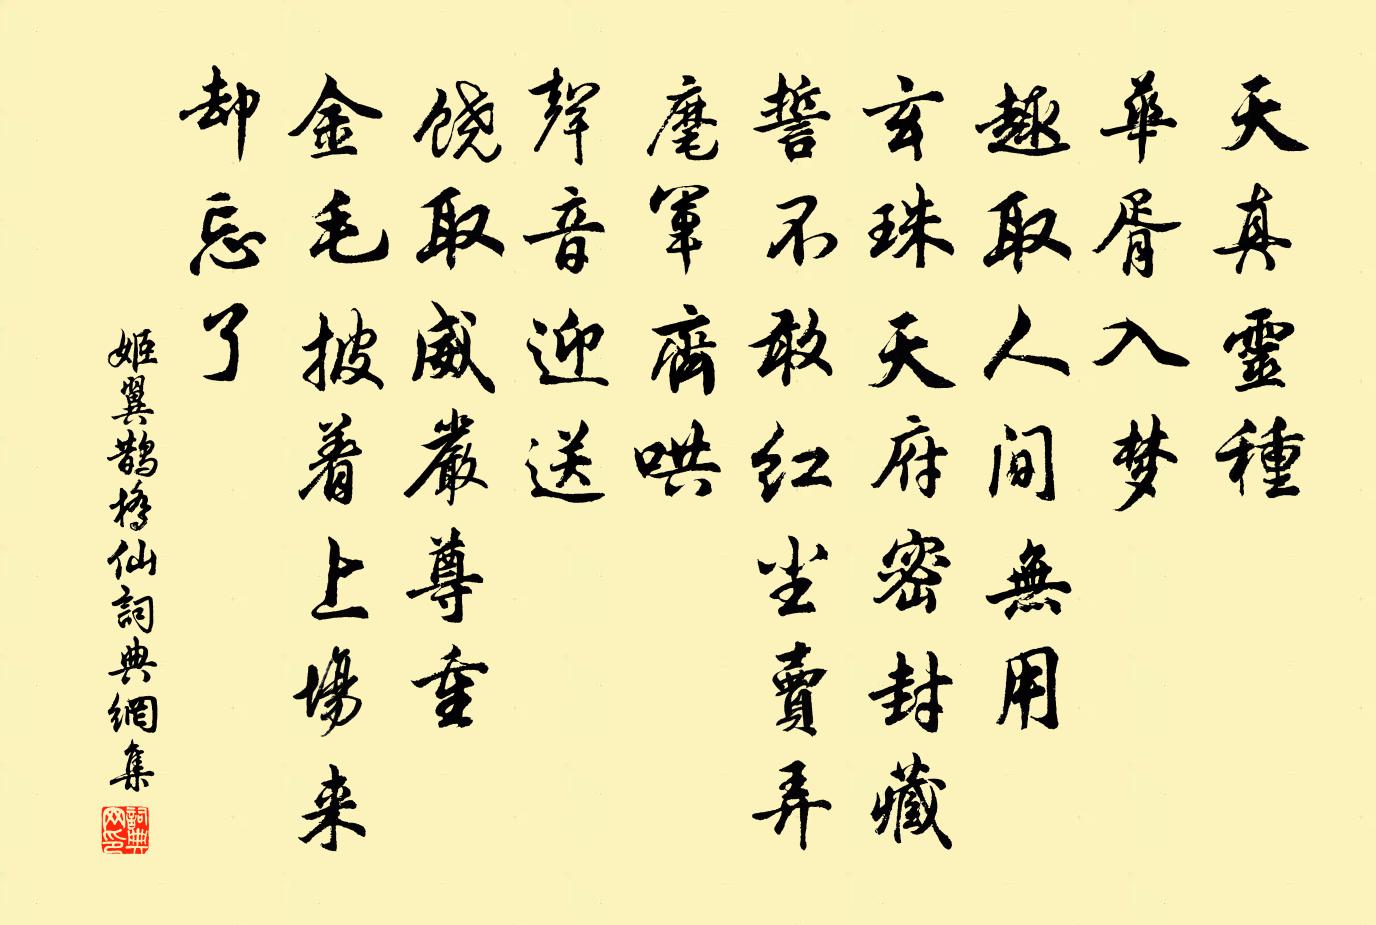 天真靈種
華胥入梦
趣取人间無用
玄珠天府密封藏
誓不敢红尘賣弄
麾軍齊哄
聲音迎送
饶取威嚴尊重
金毛披着上場来
却忘了
姬翼鹊橋仙詞典網集
詞典
网印